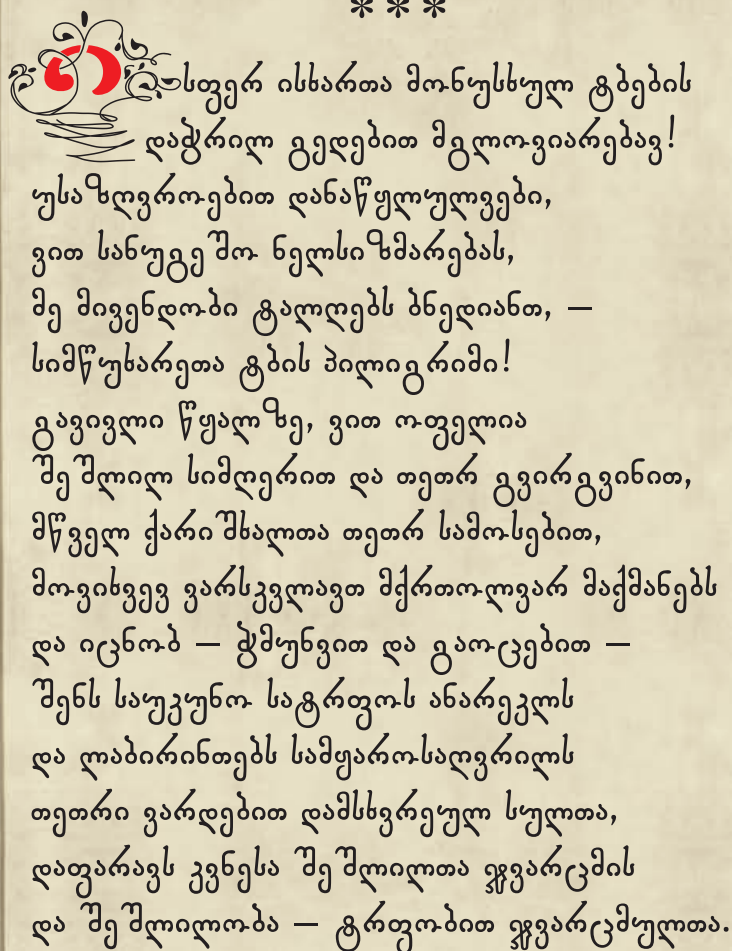 * * *
თსფერ ისხართა მონუსხულ ტბების
დაჭრილ გედებით მგლოვიარებავ!
უსაზღვროებით დანაწყლულვები,
ვით სანუგეშო ნელსიზმარებას,
მე მივენდობი ტალღებს ბნედიანთ, —
სიმწუხარეთა ტბის პილიგრიმი!
გავივლი წყალზე, ვით ოფელია
შეშლილ სიმღერით და თეთრ გვირგვინით,
მწველ ქარიშხალთა თეთრ სამოსებით,
მოვიხვევ ვარსკვლავთ მქრთოლვარ მაქმანებს
და იცნობ — ჭმუნვით და გაოცებით —
შენს საუკუნო სატრფოს ანარეკლს
და ლაბირინთებს სამყაროსაღვრილს
თეთრი ვარდებით დამსხვრეულ სულთა,
დაფარავს კვნესა შეშლილთა ჯვარცმის
და შეშლილობა — ტრფობით ჯვარცმულთა.